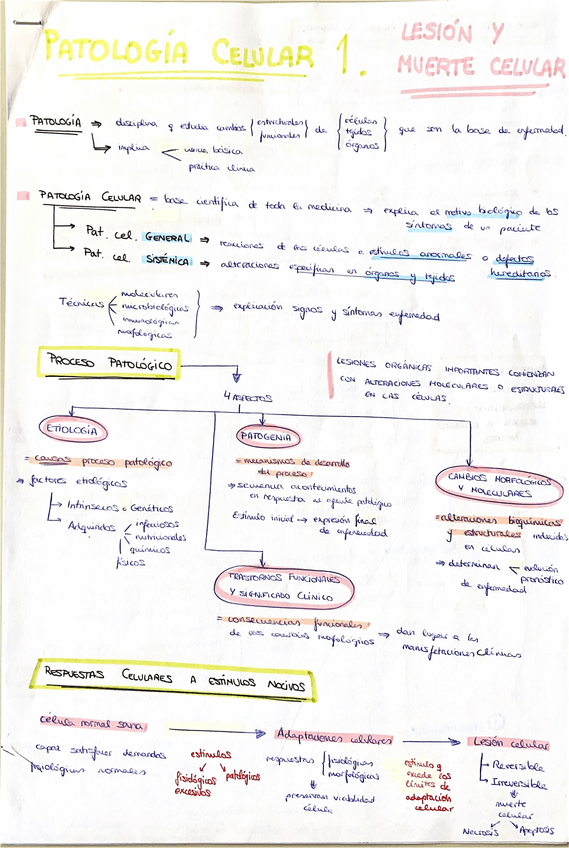 PATOLOGÍA CELULAR 1.
LESIÓN Y
MUERTE CELULAR
PATOLOGÍA ⇒ disciplina q estudia cambios { estructurales funcionales } de { células tejidos órganos } que son la base de enfermedad.
implica < ciencia básica
práctica clínica
PATOLOGÍA CELULAR = base científica de toda la medicina ⇒ explica el motivo biológico de los
síntomas de un paciente
Pat. cel. GENERAL ⇒ reacciones de las células a estímulos anormales o defectos
hereditarios.
Pat. cel. SISTÉNICA ⇒ alteraciones específicas en órganos y tejidos
Técnicas < moleculares
microbiológicas
inmunológicas
morfológicas
⇒ explicación signos y síntomas enfermedad
PROCESO PATOLÓGICO
LESIONES ORGÁNICAS IMPORTANTES COMIENZAN
CON ALTERACIONES MOLECULARES O ESTRUCTURALES
EN LAS CÉLULAS.
4 ASPECTOS
ETIOLOGÍA
= causas proceso patológico
⇒ factores etiológicos
→ Intrínsecos o Genéticos
→ Adquiridos
infecciosos
nutricionales
químicos
físicos
PATOGENIA
= mecanismos de desarrollo
del proceso
⇒ secuencia acontecimientos
en respuesta al agente patológico
Estímulo inicial → expresión final
de enfermedad
CAMBIOS MORFOLÓGICOS
Y MOLECULARES
= alteraciones bioquímicas
y estructurales inducidas
en células
⇒ determinan < evolución
pronóstico
de enfermedad
TRASTORNOS FUNCIONALES
Y SIGNIFICADO CLÍNICO
= consecuencias funcionales
de los cambios morfológicos ⇒ dan lugar a las
manifestaciones clínicas
RESPUESTAS CELULARES A ESTÍMULOS NOCIVOS
célula normal sana → Adaptaciones celulares → Lesión celular
capaz satisfacer demandas
fisiológicas normales
estímulos
fisiológicos
excesivos
patológicos
respuestas { fisiológicas
morfológicas
⇓
preservan viabilidad
célula
estímulo q
excede los
límites de
adaptación
celular
→ Reversible
→ Irreversible
⇓
muerte
celular
Necrosis
Apoptosis